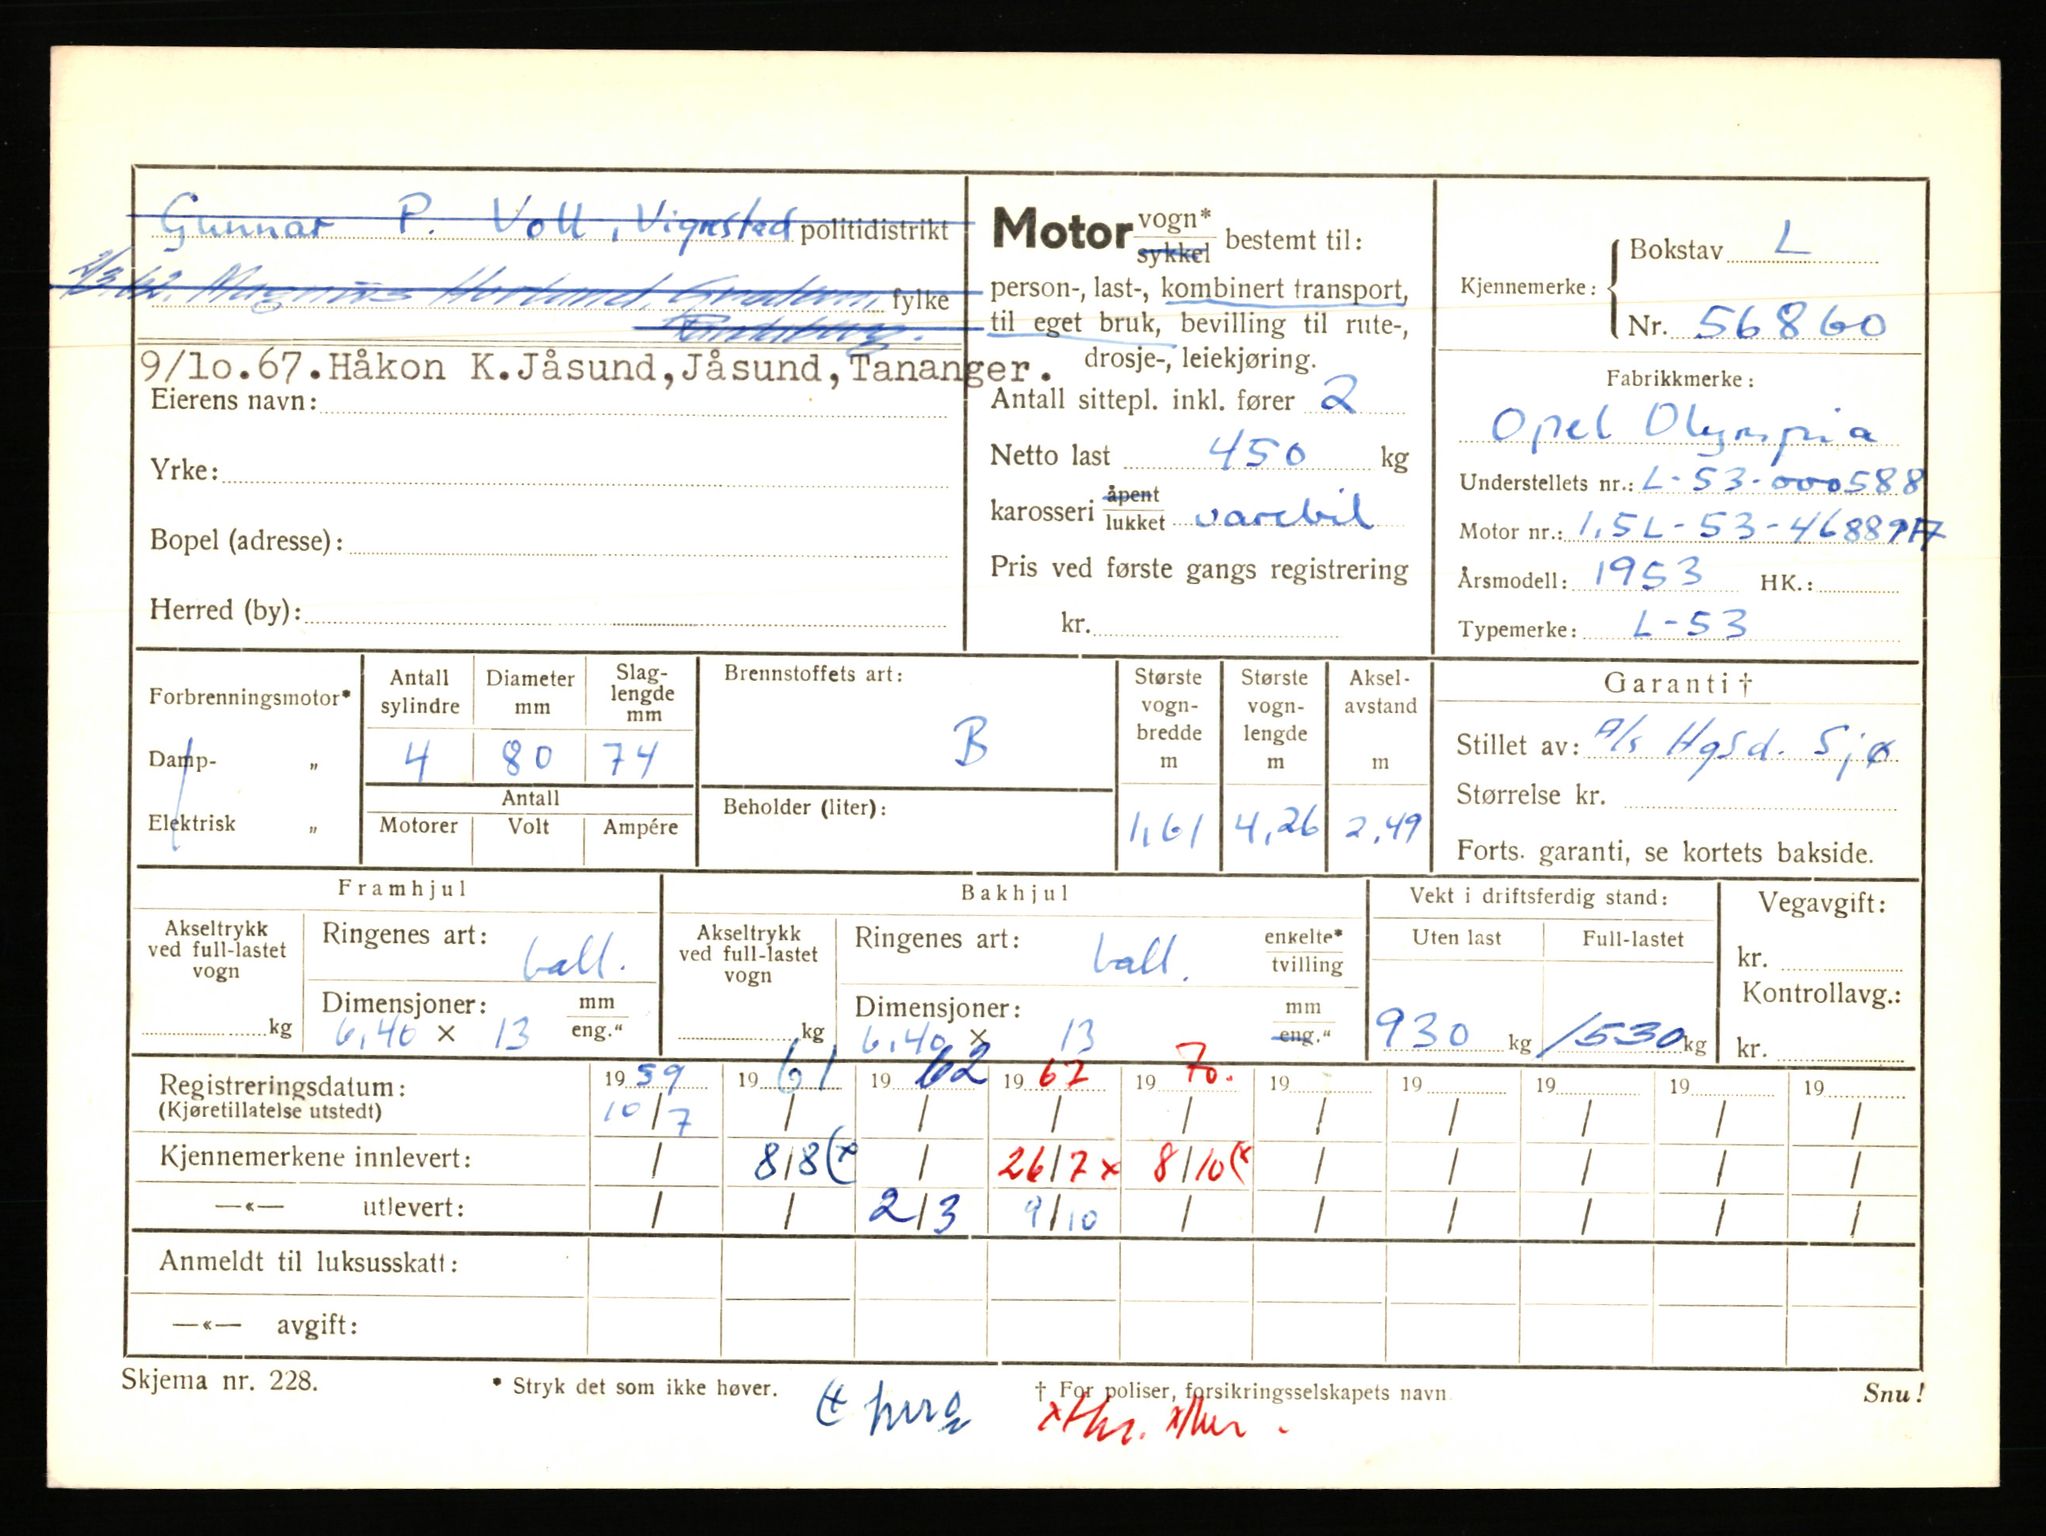 Gunnar P. Voll, Vigrestad politidistrikt
2/3.62. Magnus Horland, fylke
9/1o.67.Håkon K.Jåsund,Jåsund,Tananger.
Eierens navn:
Yrke:
Bopel (adresse):
Herred (by):
Motor vogn* sykkel bestemt til:
person-, last-, kombinert transport,
til eget bruk, bevilling til rute-,
drosje-, leiekjøring.
Antall sittepl. inkl. fører 2
Netto last 450 kg
karosseri åpent lukket varebil
Pris ved første gangs registrering
kr.
Kjennemerke: Bokstav L
Nr. 56860
Fabrikkmerke:
Opel Olympia
Understellets nr.: L-53-000588
Motor nr.: 1,5L-53-46889
Årsmodell: 1953 HK.:
Typemerke: L-53
Forbrenningsmotor*
Damp- „
Elektrisk „
Antall sylindre
4
Diameter mm
80
Slaglengde mm
74
Antall
Motorer Volt Ampére
Brennstoffets art:
B
Beholder (liter):
Største vognbredde m
1,61
Største vognlengde m
4,26
Akselavstand m
2,49
Garanti †
Stillet av: A/s Hgsd. Sjø
Størrelse kr.
Forts. garanti, se kortets bakside.
Framhjul
Akseltrykk ved full-lastet vogn
kg
Ringenes art: ball.
Dimensjoner: mm eng."
6,40 × 13
Bakhjul
Akseltrykk ved full-lastet vogn
kg
Ringenes art: ball. enkelte* tvilling
Dimensjoner: mm eng."
6,40 × 13
Vekt i driftsferdig stand:
Uten last Full-lastet
930 kg 1530 kg
Vegavgift:
kr.
Kontrollavg.:
kr.
Registreringsdatum: 19 59 19 61 19 62 19 67 19 70. 19 19 19 19 19
(Kjøretillatelse utstedt) 10/7 / / / / / / / / /
Kjennemerkene innlevert: / 8/8 (x / 26/7 x 8/10 (x / / / / /
—«— utlevert: / / 2/3 9/10 / / / / / /
Anmeldt til luksusskatt:
—«— avgift:
Skjema nr. 228.
* Stryk det som ikke høver.
† For poliser, forsikringsselskapets navn
Snu!